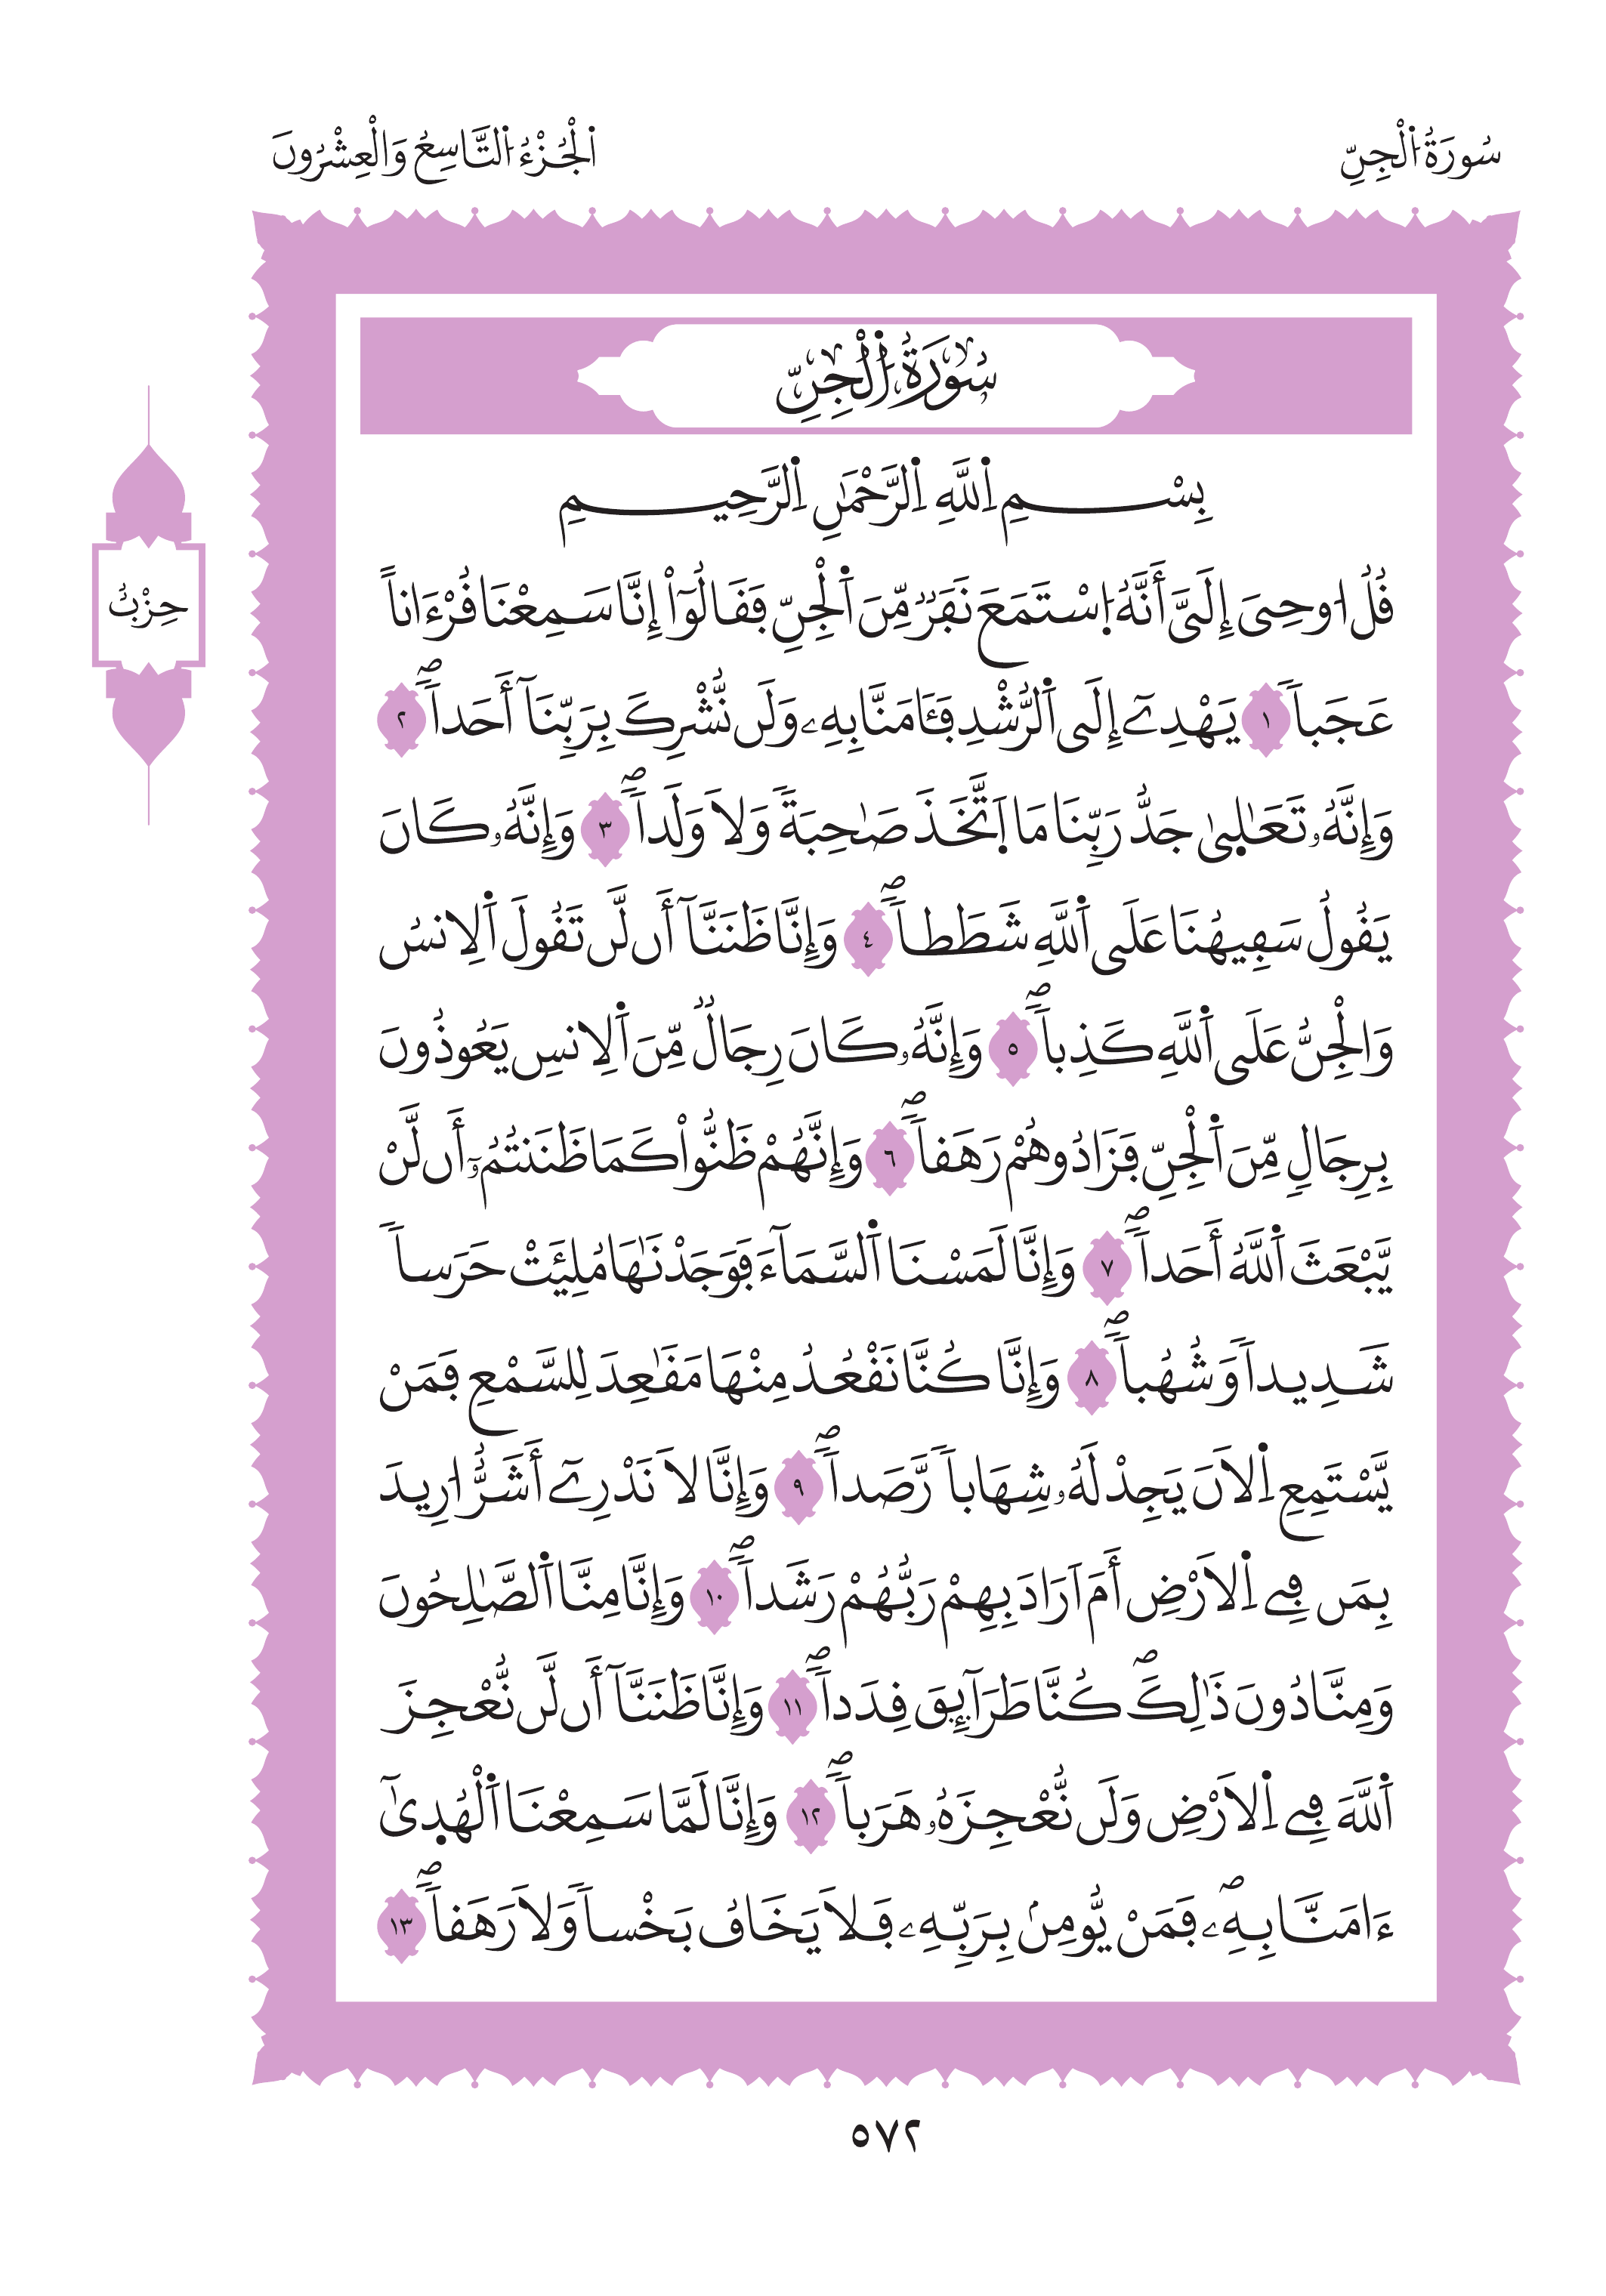 سُورَةُ اُ۬لْجِنِّ
اَ۬لْجُزْءُ اُ۬لتَّاسِعُ وَالْعِشْرُونَ
سُورَةُ اُ۬لْجِنِّ
حِزْبٌ
بِسْمِ اِ۬للَّهِ اِ۬لرَّحْمَٰنِ اِ۬لرَّحِيمِ
قُلُ ا۟وحِيَ إِلَيَّ أَنَّهُ اُ۪سْتَمَعَ نَفَرٌ مِّنَ اَ۬لْجِنِّ فَقَالُوٓاْ إِنَّا سَمِعْنَا قُرْءَاناً
عَجَباً ١ يَهْدِےٓ إِلَى اَ۬لرُّشْدِ فَـَٔامَنَّا بِهِۦ وَلَن نُّشْرِكَ بِرَبِّنَآ أَحَداٗۖ ٢
وَإِنَّهُۥ تَعَٰل۪ىٰ جَدُّ رَبِّنَا مَا اَ۪تَّخَذَ صَٰحِبَةٗ وَلَا وَلَداٗۖ ٣ وَإِنَّهُۥ كَانَ
يَقُولُ سَفِيهُنَا عَلَى اَ۬للَّهِ شَطَطاٗۖ ٤ وَإِنَّا ظَنَنَّآ أَن لَّن تَقُولَ اَ۬لِانسُ
وَالْجِنُّ عَلَى اَ۬للَّهِ كَذِباٗۖ ٥ وَإِنَّهُۥ كَانَ رِجَالٌ مِّنَ اَ۬لِانسِ يَعُوذُونَ
بِرِجَالٍ مِّنَ اَ۬لْجِنِّ فَزَادُوهُمْ رَهَقاٗۖ ٦ وَإِنَّهُمْ ظَنُّواْ كَمَا ظَنَنتُمُۥٓ أَن لَّنْ
يَّبْعَثَ اَ۬للَّهُ أَحَداٗۖ ٧ وَإِنَّا لَمَسْنَا اَ۬لسَّمَآءَ فَوَجَدْنَٰهَا مُلِئَتْ حَرَساٗ
شَدِيداٗ وَشُهُباٗۖ ٨ وَإِنَّا كُنَّا نَقْعُدُ مِنْهَا مَقَٰعِدَ لِلسَّمْعِ فَمَنْ
يَّسْتَمِعِ اِ۬لَانَ يَجِدْ لَهُۥ شِهَاباٗ رَّصَداٗۖ ٩ وَإِنَّا لَا نَدْرِےٓ أَشَرٌّ ا۟رِيدَ
بِمَن فِے اِ۬لَارْضِ أَمَ اَرَادَ بِهِمْ رَبُّهُمْ رَشَداٗۖ ١٠ وَإِنَّا مِنَّا اَ۬لصَّٰلِحُونَ
وَمِنَّا دُونَ ذَٰلِكَۖ كُنَّا طَرَآئِقَ قِدَداٗۖ ١١ وَإِنَّا ظَنَنَّآ أَن لَّن نُّعْجِزَ
اَ۬للَّهَ فِے اِ۬لَارْضِ وَلَن نُّعْجِزَهُۥ هَرَباٗۖ ١٢ وَإِنَّا لَمَّا سَمِعْنَا اَ۬لْهُد۪ىٰٓ
ءَامَنَّا بِهِۦۖ فَمَنْ يُّومِنۢ بِرَبِّهِۦ فَلَا يَخَافُ بَخْساٗ وَلَا رَهَقاٗۖ ١٣
٥٧٢